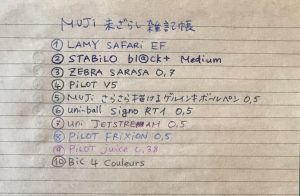 MUJI 未ざらし 雑記帳
① LAMY SAFARI EF
② STABILO bl@ck+ Medium
③ ZEBRA SARASA 0,7
④ PILOT V5
⑤ MUJI さらさら描けるゲルインキボールペン 0,5
⑥ uni-ball Signo RT1 0,5
⑦ uni JETSTREAM 0,5
⑧ PILOT FRIXION 0,5
⑨ PILOT Juice 0,38
⑩ Bic 4 Couleurs